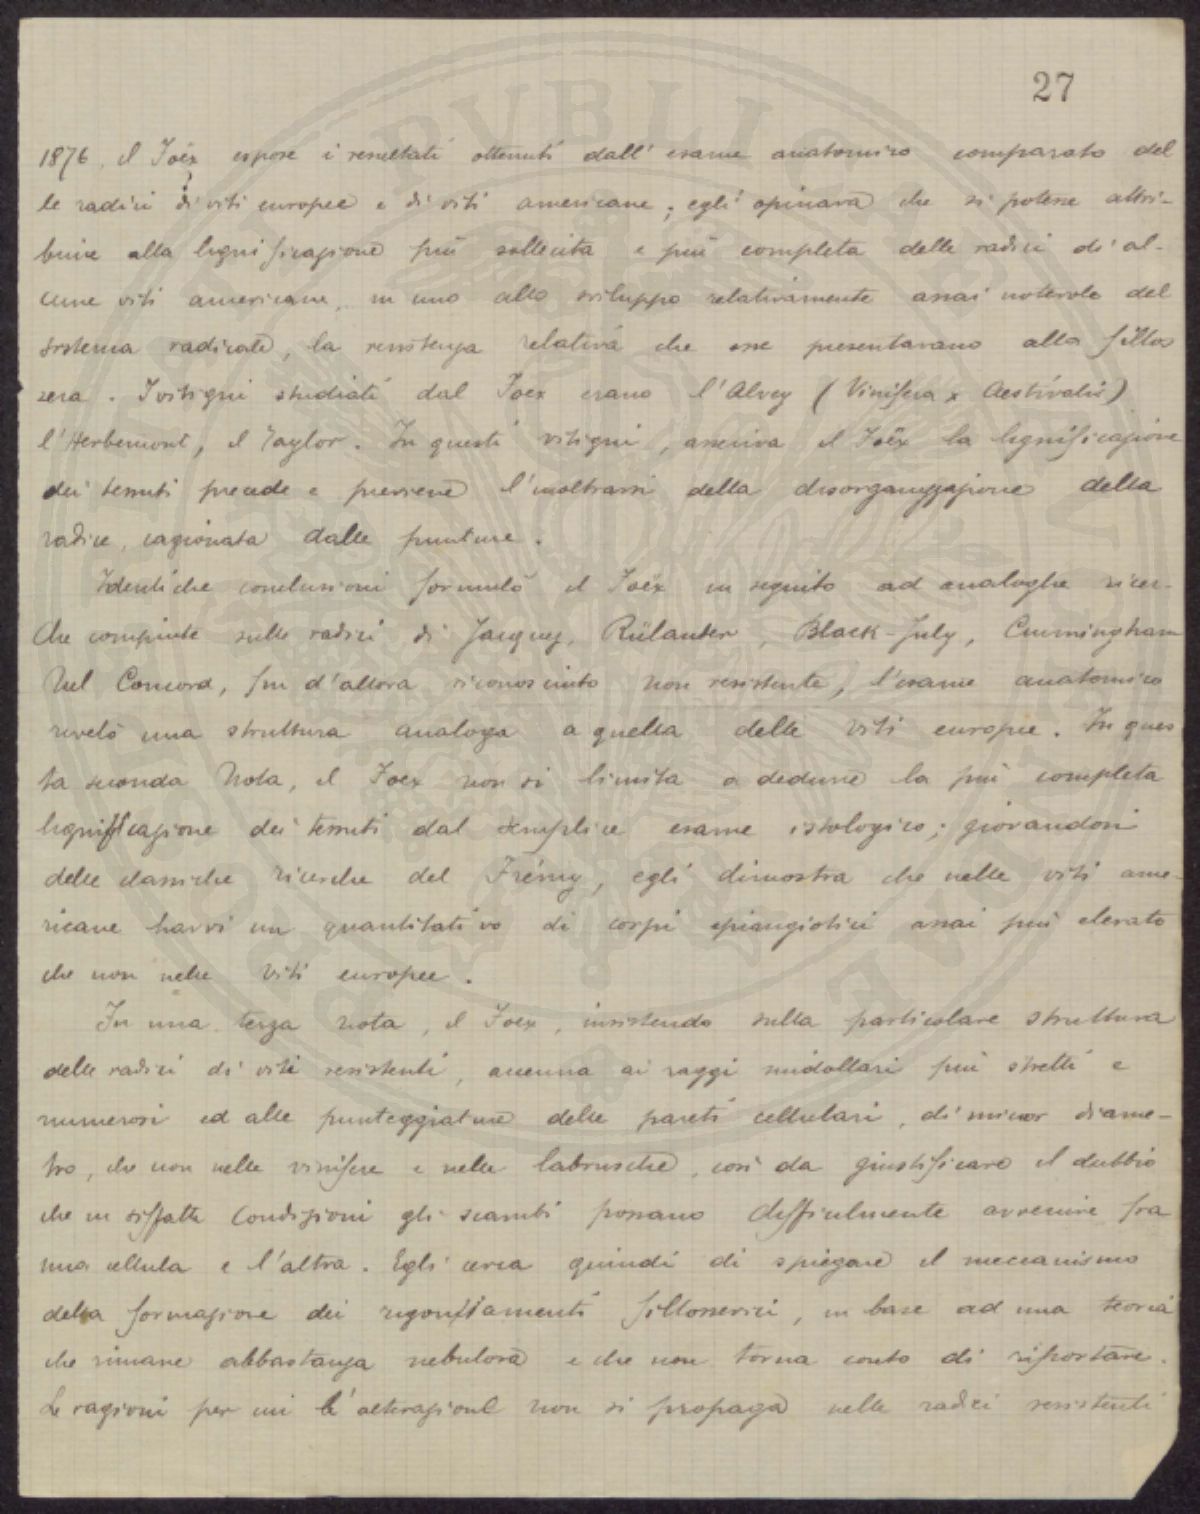 27
1876, il Foëx espose i resultati ottenuti dall' esame anatomico comparato del
le radici di viti europee e di viti americane; egli opinava che si potesse attri-
buire alla lignificazione più sollecita e più completa delle radici di al-
cune viti americane, in uno allo sviluppo relativamente assai notevole del
sistema radicale, la resistenza relativa che esse presentavano alla fillos
sera. I vitigni studiati dal Foex erano l'Alvey (Vinifera x Aestivalis)
l'Herbemont, il Taylor. In questi vitigni, asseriva il Foëx la lignificazione
dei tessuti precede e previene l'inoltrarsi della disorganizzazione della
radice, cagionata dalle punture.
Identiche conclusioni formulò il Foëx in seguito ad analoghe ricer-
che compiute sulle radici di Jacquez, Rülauder, Black-July, Cunningham
Nel Concord, fin d'allora riconosciuto non resistente, l'esame anatomico
rivelò una struttura analoga a quella delle viti europee. In ques
ta seconda Nota, il Foex non si limita a dedurre la più completa
lignificazione dei tessuti dal semplice esame istologico; giovandosi
delle classiche ricerche del Frémy, egli dimostra che nelle viti ame-
ricane havvi un quantitativo di corpi epiangiotici assai più elevato
che non nelle viti europee.
In una terza nota, il Foex, insistendo sulla particolare struttura
delle radici di viti resistenti, accenna ai raggi midollari più stretti e
numerosi ed alle punteggiature delle pareti cellulari, di minor diame-
tro, che non nelle vinifere e nelle labrusche, così da giustificare il dubbio
che in siffatte condizioni gli scambi possano difficilmente avvenire fra
una cellula e l'altra. Egli cerca quindi di spiegare il meccanismo
della formazione dei rigonfiamenti fillosserici, in base ad una teoria
che rimane abbastanza nebulosa e che non torna conto di riportare.
Le ragioni per cui l'alterazione non si propaga nelle radici resistenti